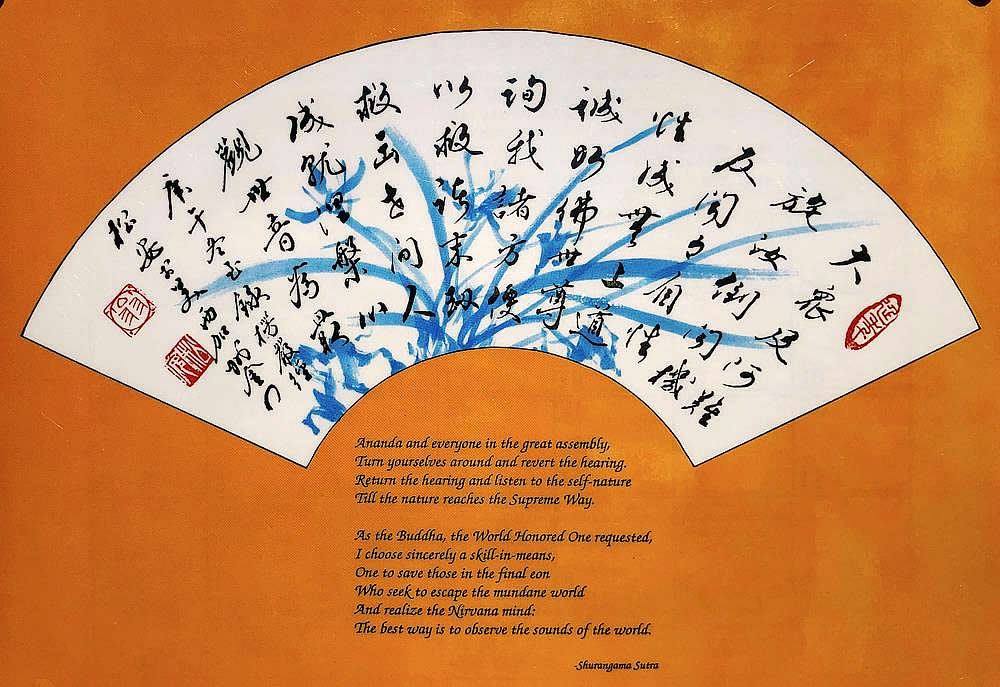 大眾及阿難
旋汝倒聞機
反聞聞自性
性成無上道
誠如佛世尊
詢我諸方便
以救諸末劫
救出世間人
成就涅槃心
觀世音為最
庚午冬 錄楞嚴經
金門
Ananda and everyone in the great assembly,
Turn yourselves around and revert the hearing.
Return the hearing and listen to the self-nature
Till the nature reaches the Supreme Way.
As the Buddha, the World Honored One requested,
I choose sincerely a skill-in-means,
One to save those in the final eon
Who seek to escape the mundane world
And realize the Nirvana mind:
The best way is to observe the sounds of the world.
-Shurangama Sutra